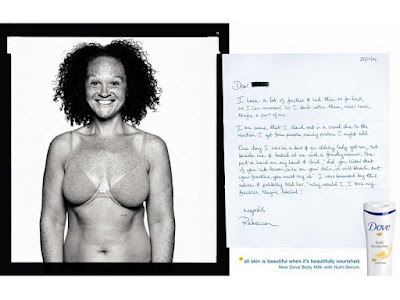 Dear
I have a lot of freckles & had them as far back
as I can remember so I don't notice them, never have,
they're a part of me.
I am aware that I stand out in a crowd due to the
reaction I get from people, mainly positive I might add.
One day I was on a bus & an elderly lady got on, sat
beside me & looked at me with a friendly manner. She
put a hand on my hand & said, "did you know that
if you rub lemon juice on your skin it will bleach out
your freckles, you must try it". I was bemused by that
advice & politely told her, "why would I, I love my
freckles, they're special".
Rebecca
all skin is beautiful when it's beautifully nourished.
New Dove Body Milk with Nutri-Serum.
Dove